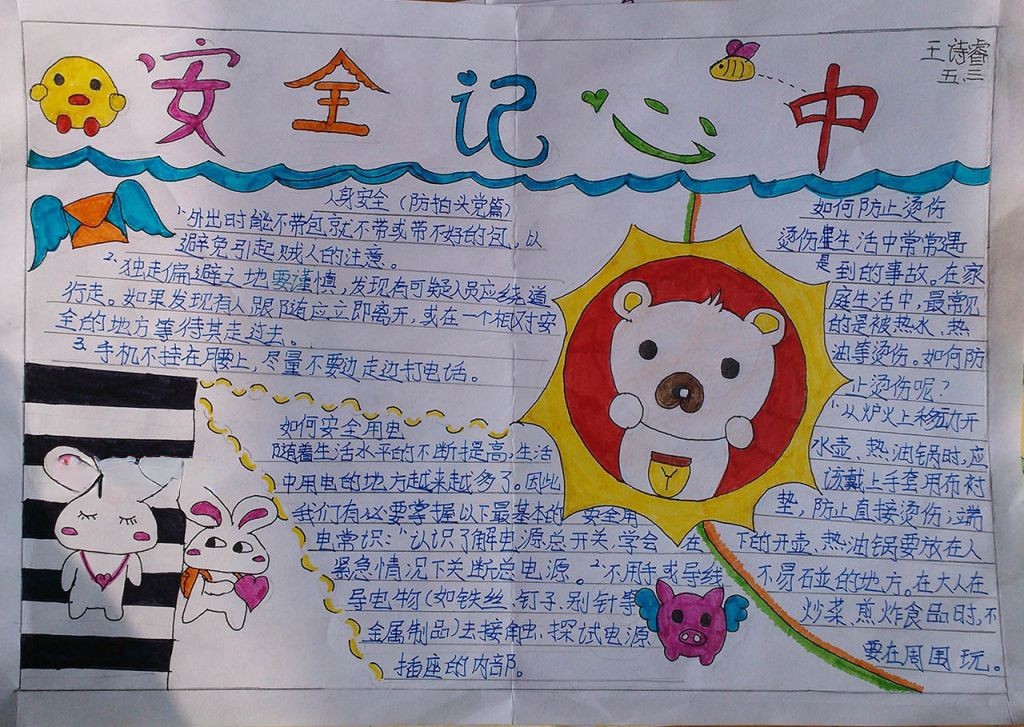 安全记心中
王诗睿
五.三
人身安全（防拍头党篇）
1、外出时能不带包就不带或带不好的包，以
避免引起贼人的注意。
2、独走偏避之地要谨慎，发现有可疑人员应绕道
行走。如果发现有人跟随应立即离开，或在一个相对安
全的地方等待其走过去。
3、手机不挂在腰上，尽量不要边走边打电话。
如何安全用电
随着生活水平的不断提高，生活
中用电的地方越来越多了。因此
我们有必要掌握以下最基本的安全用
电常识：1、认识了解电源总开关，学会在
紧急情况下关断总电源。2、不用手或导线
导电物（如铁丝、钉子、别针等
金属制品）去接触、探试电源
插座的内部。
如何防止烫伤
烫伤是生活中常常遇
是到的事故。在家
庭生活中，最常见
的是被热水、热
油等烫伤。如何防
止烫伤呢？
1、从炉火上移动开
水壶、热油锅时，应
该戴上手套用布衬
垫，防止直接烫伤；端
下的开壶、热油锅要放在人
不易碰的地方。在大人在
炒菜、煎炸食品时，不
要在周围玩。